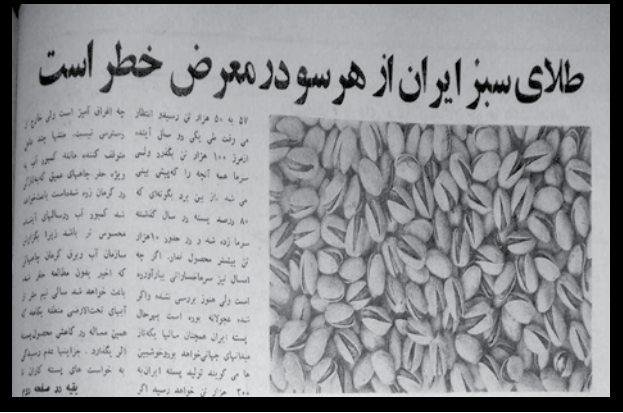 طلای سبز ایران از هر سو در معرض خطر است
۵۷ به ۵۰ هزار تن رسیدو انتظار
می رفت طی یکی دو سال آینده
ازمرز ۱۰۰ هزار تن بگذرد ولی
سرما همه آنچه را که پیش بینی
می شد از بین برد بگونه‌ای که
۸۰ درصد پسته در سال گذشته
سرما زده شد و در حدود ۱۰هزار
تن بیشتر محصول نداد. اگر چه
امسال نیز سرماخساراتی ببارآورده
است ولی هنوز بررسی نشده واگر
شده عجولانه بوده است بهرحال
پسته ایران همچنان سالها یکه‌تاز
میدانهای جهانی‌خواهد بودوخوشبین
ها می گویند تولید پسته ایران‌به
۳۰۰ هزار تن خواهد رسید اگر
چه اغراق آمیز است ولی خارج از
دسترسی نیست، منتها چند عامل
متوقف کننده مانند کمبود آب به
ویژه حفر چاههای عمیق که
در کرمان زده شده‌است باعث‌خواهد
شد کمبود آب درسالهای آینده
محسوس تر باشد زیرا بگزارش
سازمان آب و برق کرمان چاههائی
که اخیر بدون مطالعه حفر شده
باعث خواهد شد سالی نیم متر از
آبهای تحت‌الارضی منطقه بکاهد که
همین مساله در کاهش محصول‌پسته
اثر بگذارد . جزاینها عدم رسیدگی
به خواست های پسته کاران
بقیه در صفحه دوم